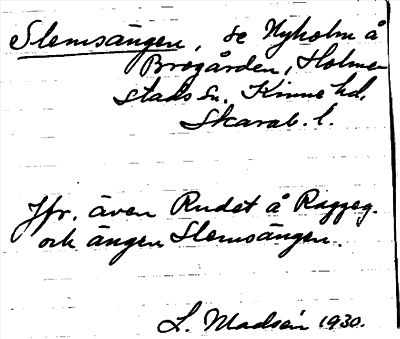 Slemsängen, se Nyholm å
Brogården, Holme-
stads sn. Kinne hd.
Skarab. l.
Jfr. även Rudet å Raggeg.
och ängen Slemsängen.
L. Madsén 1930.